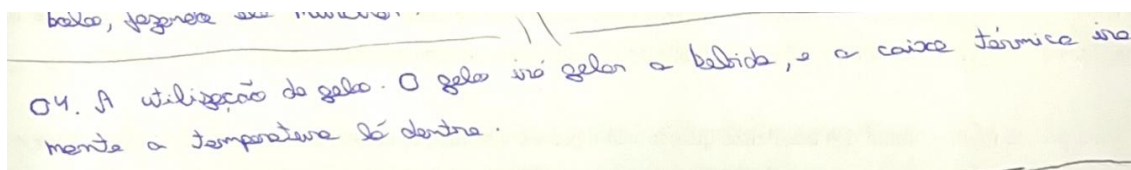 balão, fazendo ele
04. A utilização do gelo. O gelo irá gelar a bebida, e a caixa térmica ira
mante a temperatura lá dentro.